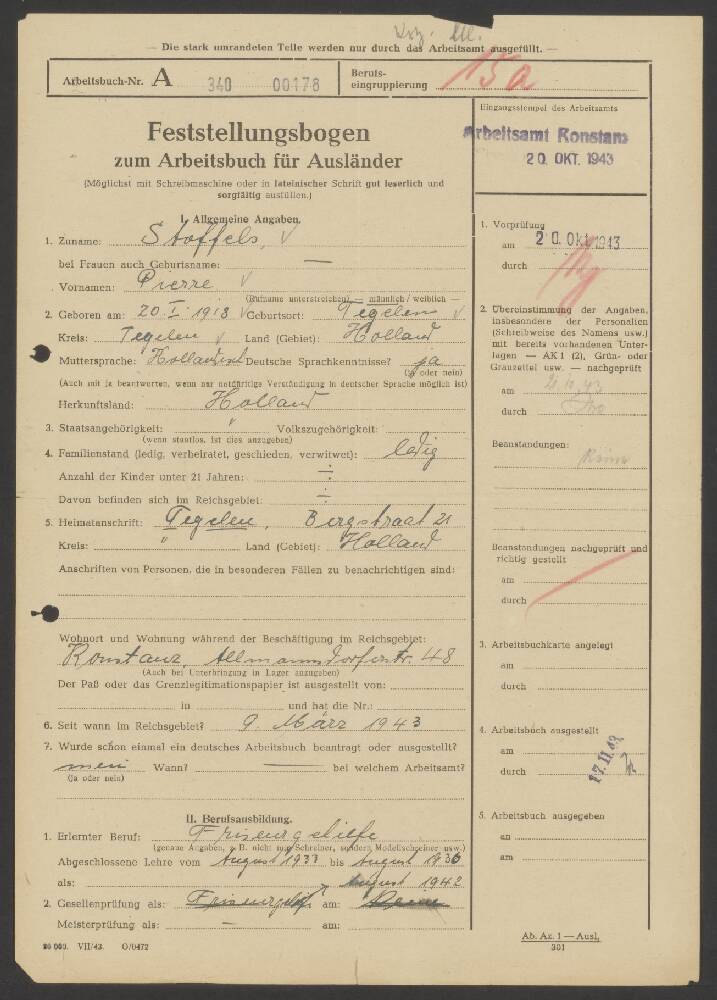 — Die stark umrandeten Teile werden nur durch das Arbeitsamt ausgefüllt. —
Arbeitsbuch-Nr. A 340 00178
Berufs-
eingruppierung 15a
Feststellungsbogen
zum Arbeitsbuch für Ausländer
(Möglichst mit Schreibmaschine oder in lateinischer Schrift gut leserlich und
sorgfältig ausfüllen.)
I. Allgemeine Angaben.
1. Zuname: Stoffels, √
bei Frauen auch Geburtsname: —
Vornamen: Pierre √
(Rufname unterstreichen) — männlich / weiblich —
2. Geboren am: 20 I 1918 √ Geburtsort: Tegelen √
Kreis: Tegelen √ Land (Gebiet): Holland
Muttersprache: Holländisch Deutsche Sprachkenntnisse? ja
(ja oder nein)
(Auch mit ja beantworten, wenn nur notdürftige Verständigung in deutscher Sprache möglich ist)
Herkunftsland: Holland
3. Staatsangehörigkeit: " Volkszugehörigkeit:
(wenn staatlos, ist dies anzugeben)
4. Familienstand (ledig, verheiratet, geschieden, verwitwet): ledig
Anzahl der Kinder unter 21 Jahren: ÷
Davon befinden sich im Reichsgebiet: ÷
5. Heimatanschrift: Tegelen, Bergstraat 21
Kreis: " Land (Gebiet): Holland
Anschriften von Personen, die in besonderen Fällen zu benachrichtigen sind:
Wohnort und Wohnung während der Beschäftigung im Reichsgebiet:
Konstanz, Allmannsdorferstr. 48
(Auch bei Unterbringung in Lager anzugeben)
Der Paß oder das Grenzlegitimationspapier ist ausgestellt von:
in und hat die Nr.:
6. Seit wann im Reichsgebiet? 9. März 1943
7. Wurde schon einmal ein deutsches Arbeitsbuch beantragt oder ausgestellt?
nein Wann? — bei welchem Arbeitsamt?
(ja oder nein)
II. Berufsausbildung.
1. Erlernter Beruf: Friseurgehilfe
(genaue Angaben, z. B. nicht nur Schreiner, sondern Modellschreiner usw.)
Abgeschlossene Lehre vom August 1933 bis August 1936
als: August 1942
2. Gesellenprüfung als: Friseurgehilfe am:
Meisterprüfung als: — am:
20 000. VII/43. O/0472
Eingangsstempel des Arbeitsamts
Arbeitsamt Konstanz
20. OKT. 1943
1. Vorprüfung
am 20. Okt. 1943
durch
2. Übereinstimmung der Angaben,
insbesondere der Personalien
(Schreibweise des Namens usw.)
mit bereits vorhandenen Unter-
lagen — AK 1 (2), Grün- oder
Grauzettel usw. — nachgeprüft
am
durch
Beanstandungen:
Keine
Beanstandungen nachgeprüft und
richtig gestellt
am
durch
3. Arbeitsbuchkarte angelegt
am
durch
4. Arbeitsbuch ausgestellt
am
durch
17. 11. 43
5. Arbeitsbuch ausgegeben
an
am
Ab. Az. 1 — Ausl.
301